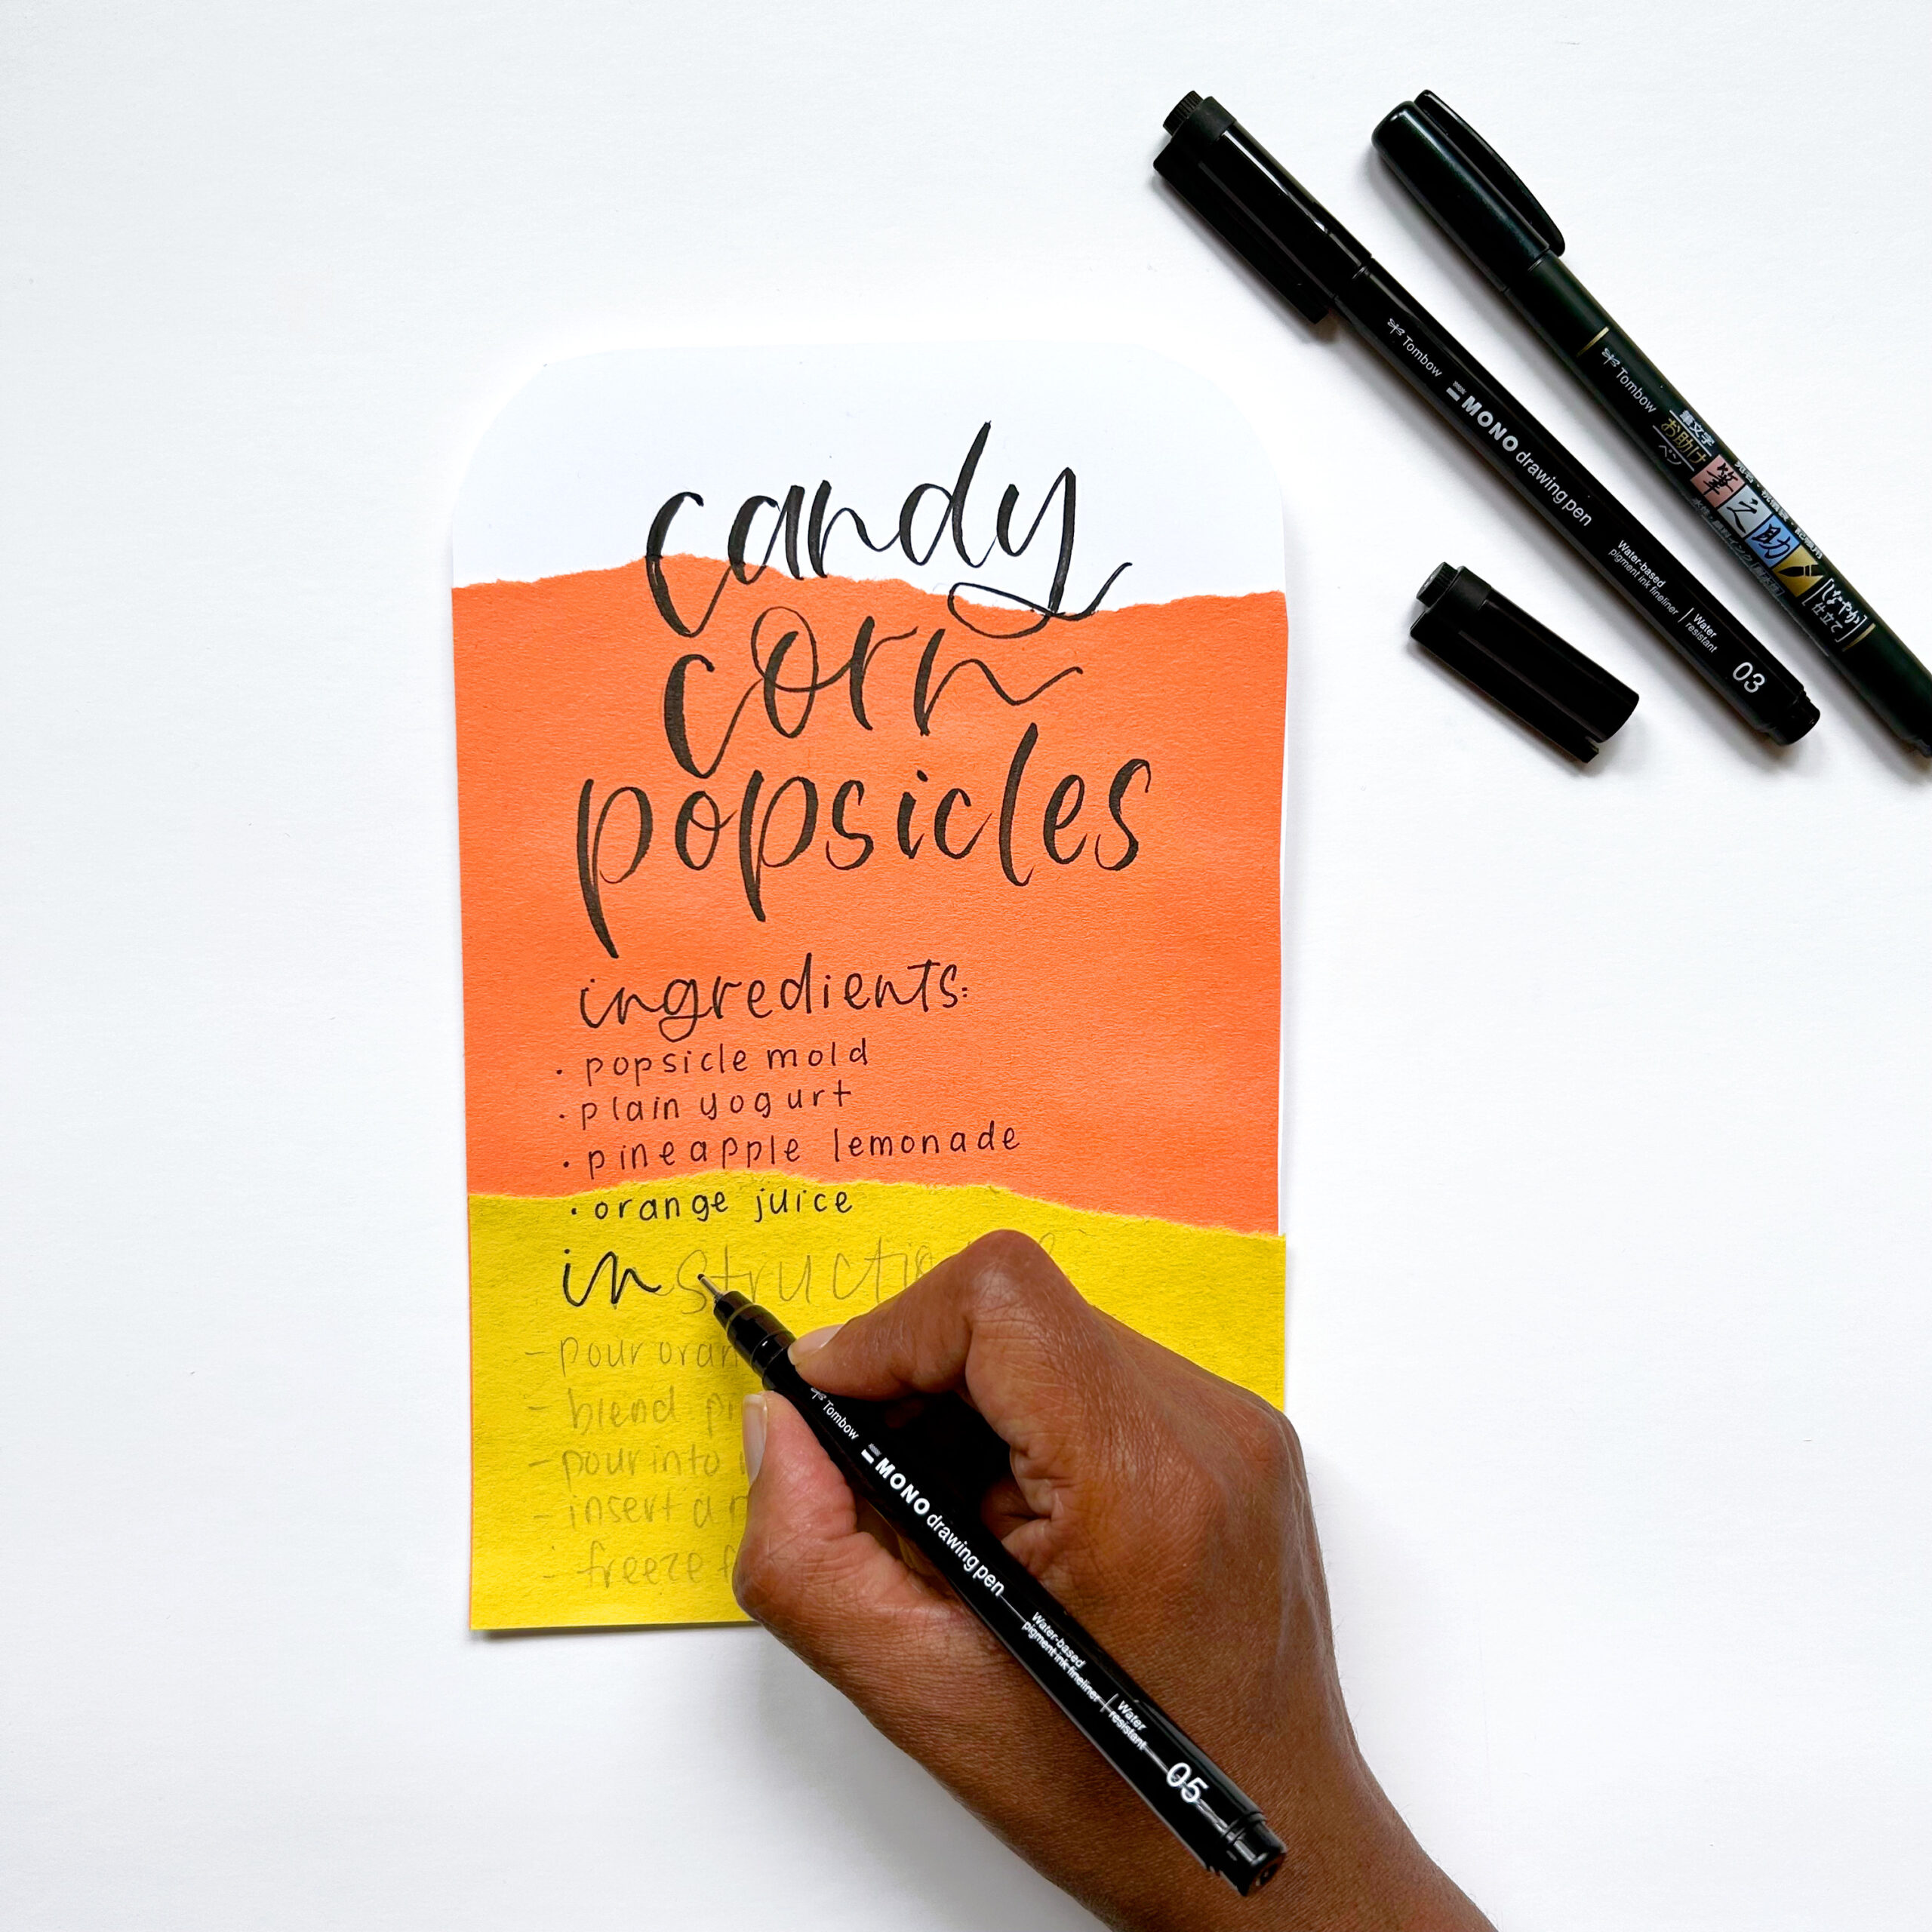 candy
corn
popsicles
ingredients:
· popsicle mold
· plain yogurt
· pineapple lemonade
· orange juice
instructio
- pour oran
- blend pi
- pour into
- insert a
- freeze f
Tombow
MONO drawing pen
Water-based
pigment ink fineliner
Water
resistant
05
Tombow
MONO drawing pen
Water-based
pigment ink fineliner
Water
resistant
03
Tombow
筆文字
お助け
ペン
筆之助
しなやか
仕立て